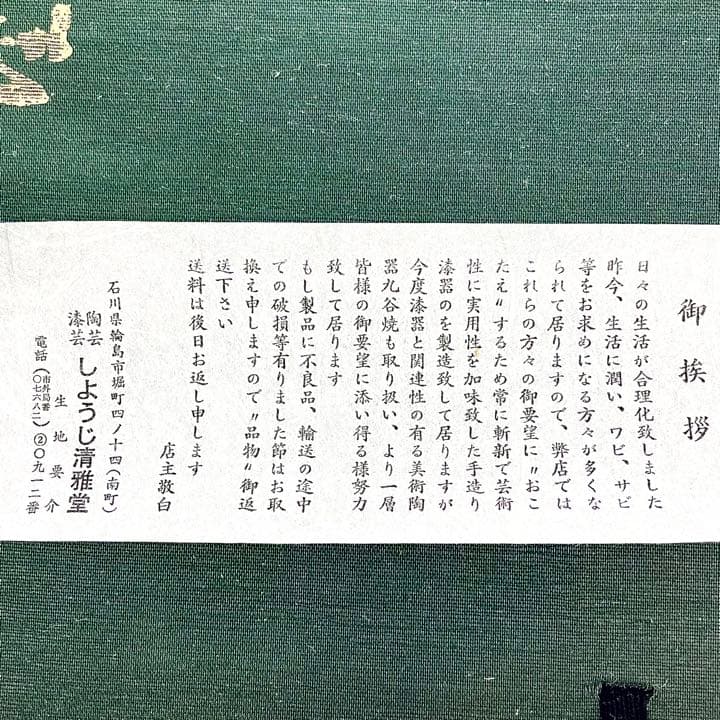 御挨拶
日々の生活が合理化致しました
昨今、生活に潤い、ワビ、サビ
等をお求めになる方々が多くな
られて居りますので、弊店では
これらの方々の御要望に〃おこ
たえ〃するため常に斬新で芸術
性に実用性を加味致した手造り
漆器のを製造致して居りますが
今度漆器と関連性の有る美術陶
器九谷焼も取り扱い、より一層
皆様の御要望に添い得る様努力
致して居ります
もし製品に不良品、輸送の途中
での破損等有りました節はお取
換え申しますので〃品物〃御返
送下さい
送料は後日お返し申します
店主敬白
石川県輪島市堀町四ノ十四(南町)
陶芸
漆芸
しようじ清雅堂
生地要介
電話(市外局番〇七六八二)②〇九一二番